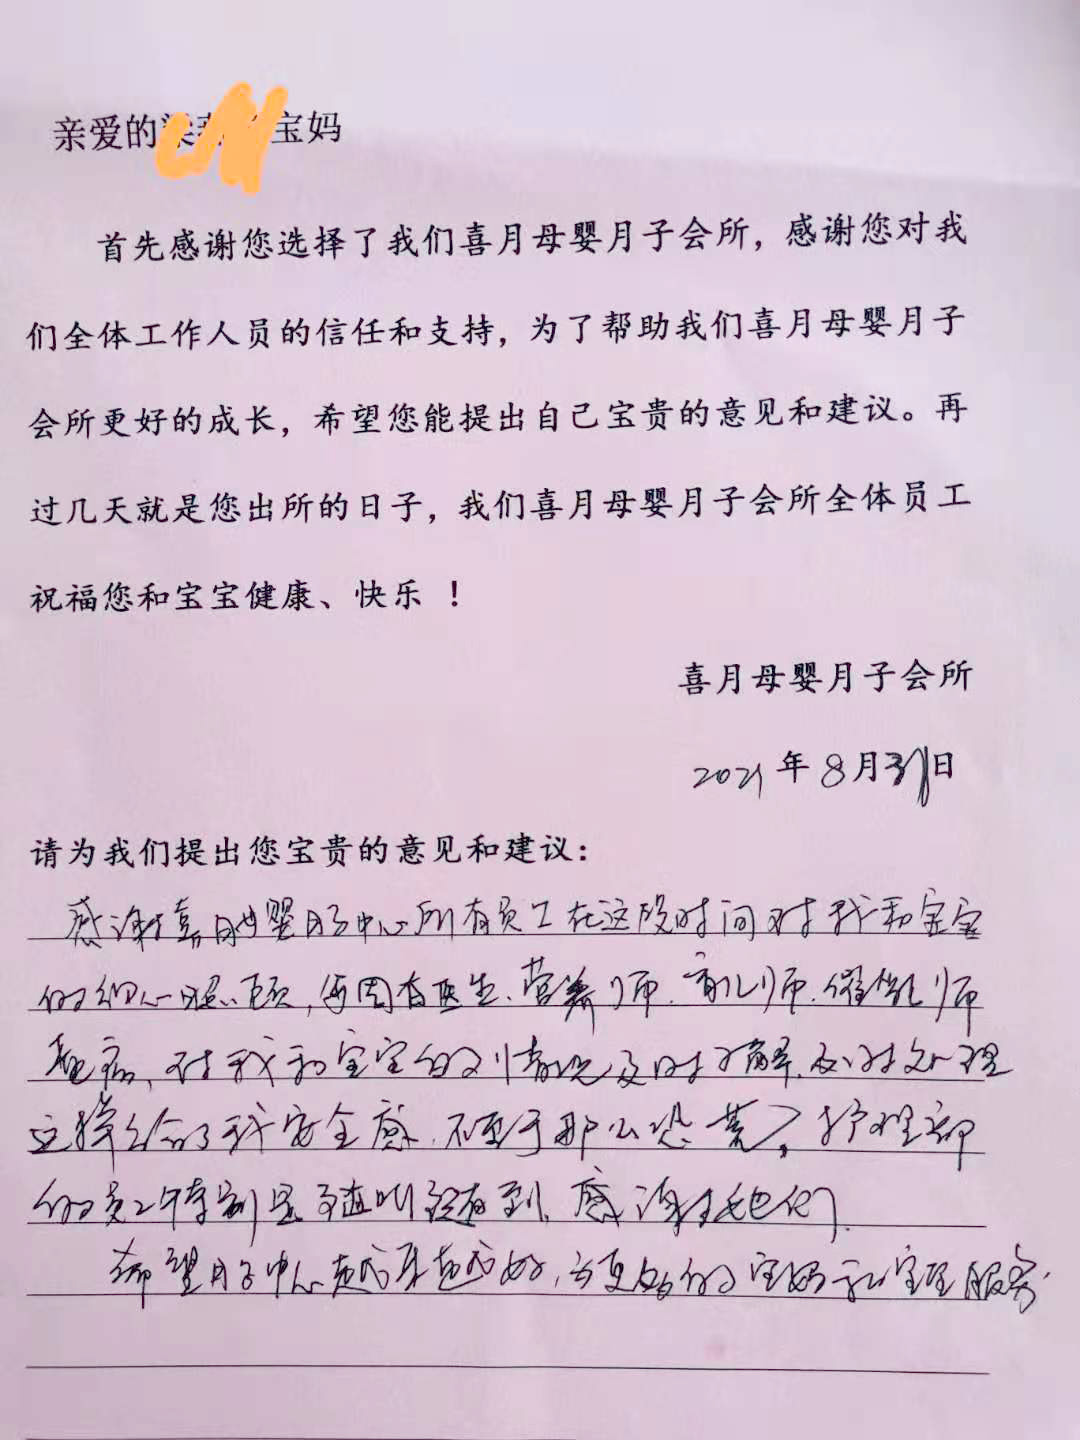 亲爱的宝妈
首先感谢您选择了我们喜月母婴月子会所，感谢您对我
们全体工作人员的信任和支持，为了帮助我们喜月母婴月子
会所更好的成长，希望您能提出自己宝贵的意见和建议。再
过几天就是您出所的日子，我们喜月母婴月子会所全体员工
祝福您和宝宝健康、快乐 ！
喜月母婴月子会所
2021年8月31日
请为我们提出您宝贵的意见和建议：
感谢喜月母婴月子中心所有员工在这段时间对我和宝宝
的细心照顾，每周有医生、营养师、育儿师、催乳师
查房，对我和宝宝的情况及时了解、及时处理
这样给了我安全感，不至于那么恐慌，护理部
的员工特别是随叫随到，感谢她们
希望月子中心越来越好，为更多的宝妈和宝宝服务。